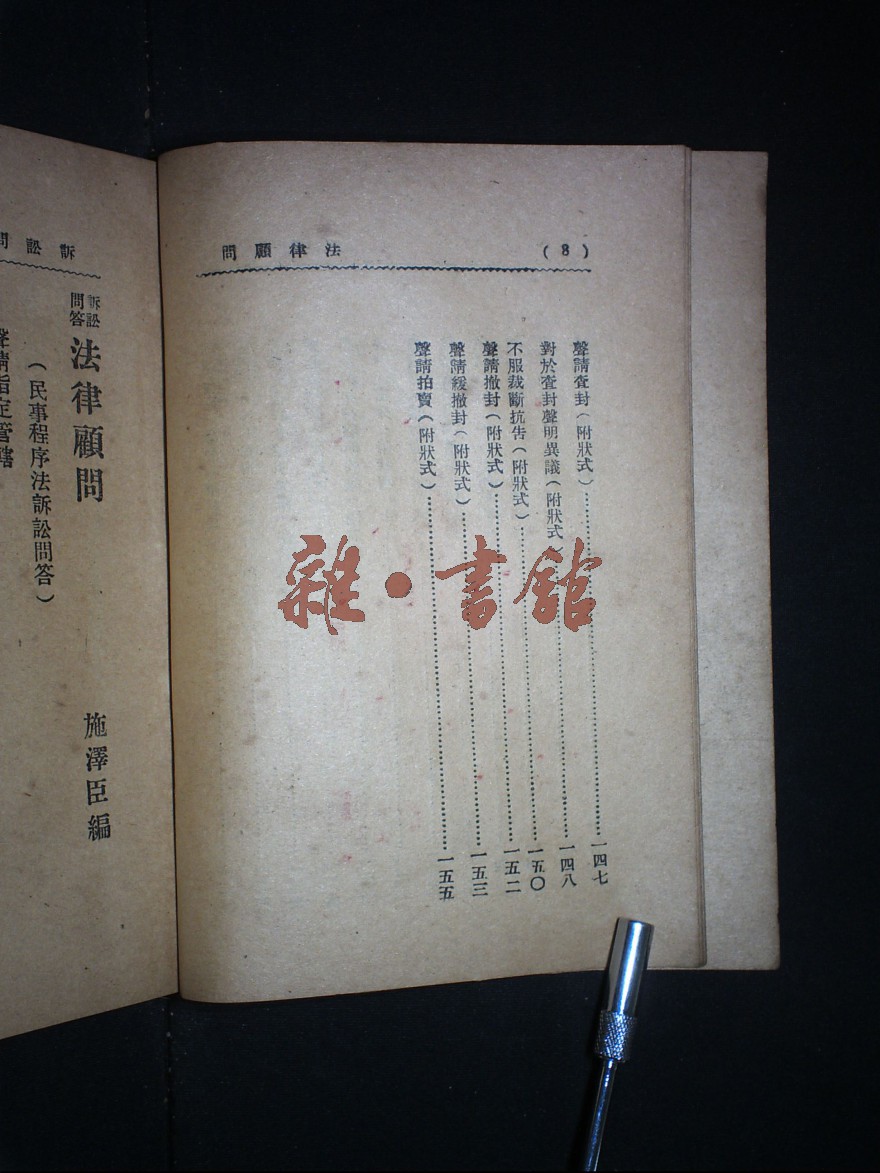 (8)
法律顧問
聲請查封(附狀式)……一四七
對於查封聲明異議(附狀式……一四八
不服裁斷抗告(附狀式)……一五〇
聲請撤封(附狀式)……一五二
聲請緩撤封(附狀式)……一五三
聲請拍賣(附狀式)……一五五
雜·書館
訴訟問
訴訟問答
法律顧問
施澤臣編
(民事程序法訴訟問答)
聲請指定管轄